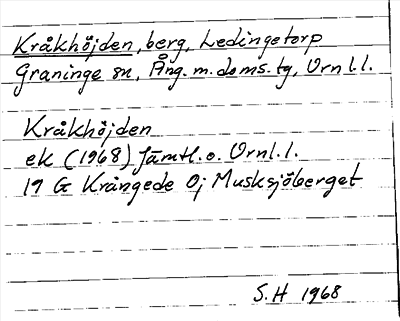 Kråkhöjden, berg, Ledingetorp
Graninge sn, Ång. m. doms. tg, Vrnl. l.
Kråkhöjden
ek (1968) Jämtl. o. Vrnl. l.
19 G Krångede 0j Musksjöberget
S.H 1968